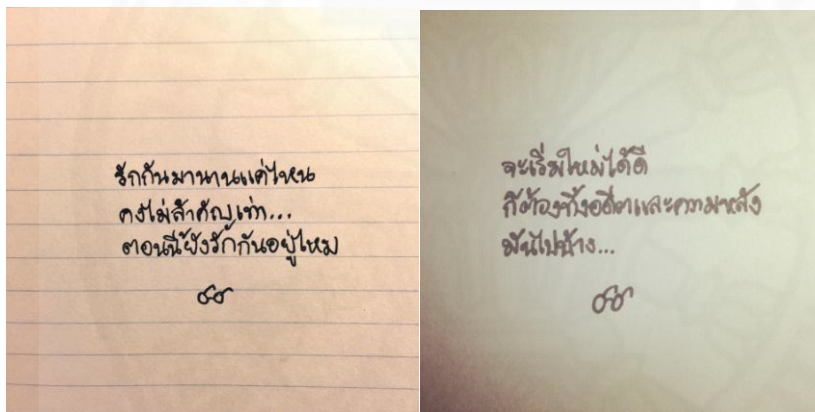 รักกันมานานแค่ไหน
คงไม่สำคัญเท่า...
ตอนนี้ยังรักกันอยู่ไหม
จะเริ่มใหม่ได้ดี
ก็ต้องทิ้งอดีตและความหลัง
มันไปบ้าง...